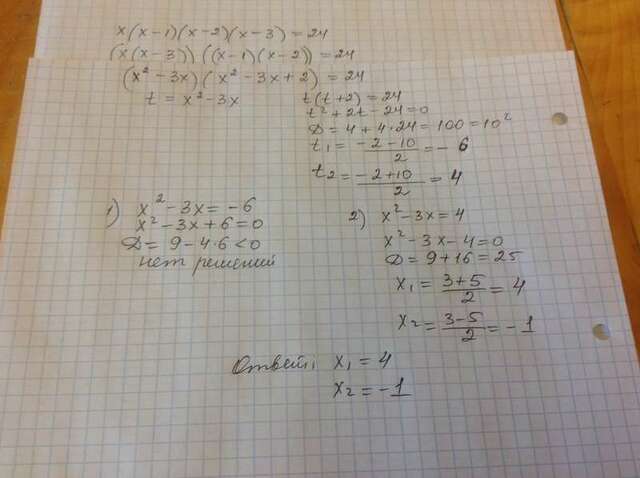 x(x-1)(x-2)(x-3)=24
(x(x-3))((x-1)(x-2))=24
(x²-3x)(x²-3x+2)=24
t=x²-3x
t(t+2)=24
t²+2t-24=0
D=4+4·24=100=10²
t₁=(-2-10)/2=-6
t₂=(-2+10)/2=4
1) x²-3x=-6
x²-3x+6=0
D=9-4·6<0
нет решений
2) x²-3x=4
x²-3x-4=0
D=9+16=25
x₁=(3+5)/2=4
x₂=(3-5)/2=-1
Ответ: x₁=4
x₂=-1